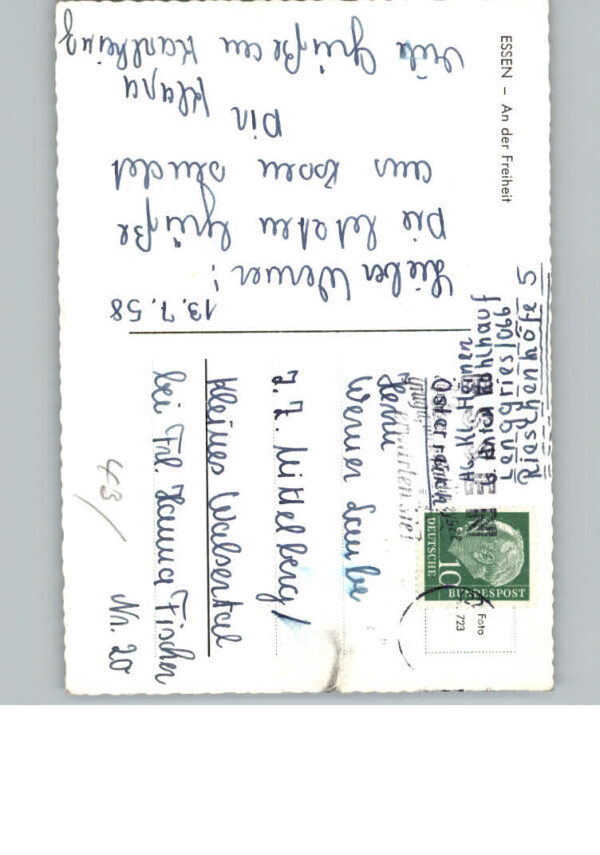 ESSEN – An der Freiheit
13.7.58
Lieber Werner!
Die letzten Grüße
aus Essen sendet
Din Klara
Viele Grüße an Karlheinz
Foto
723
DEUTSCHE
BUNDESPOST
10
erwarten Sie!
Österreich
Herrn
Werner Laube
z. Z. Mittelberg/
Kleines Walsertal
bei Frl. Hanna Fischer
Nr. 20
43/